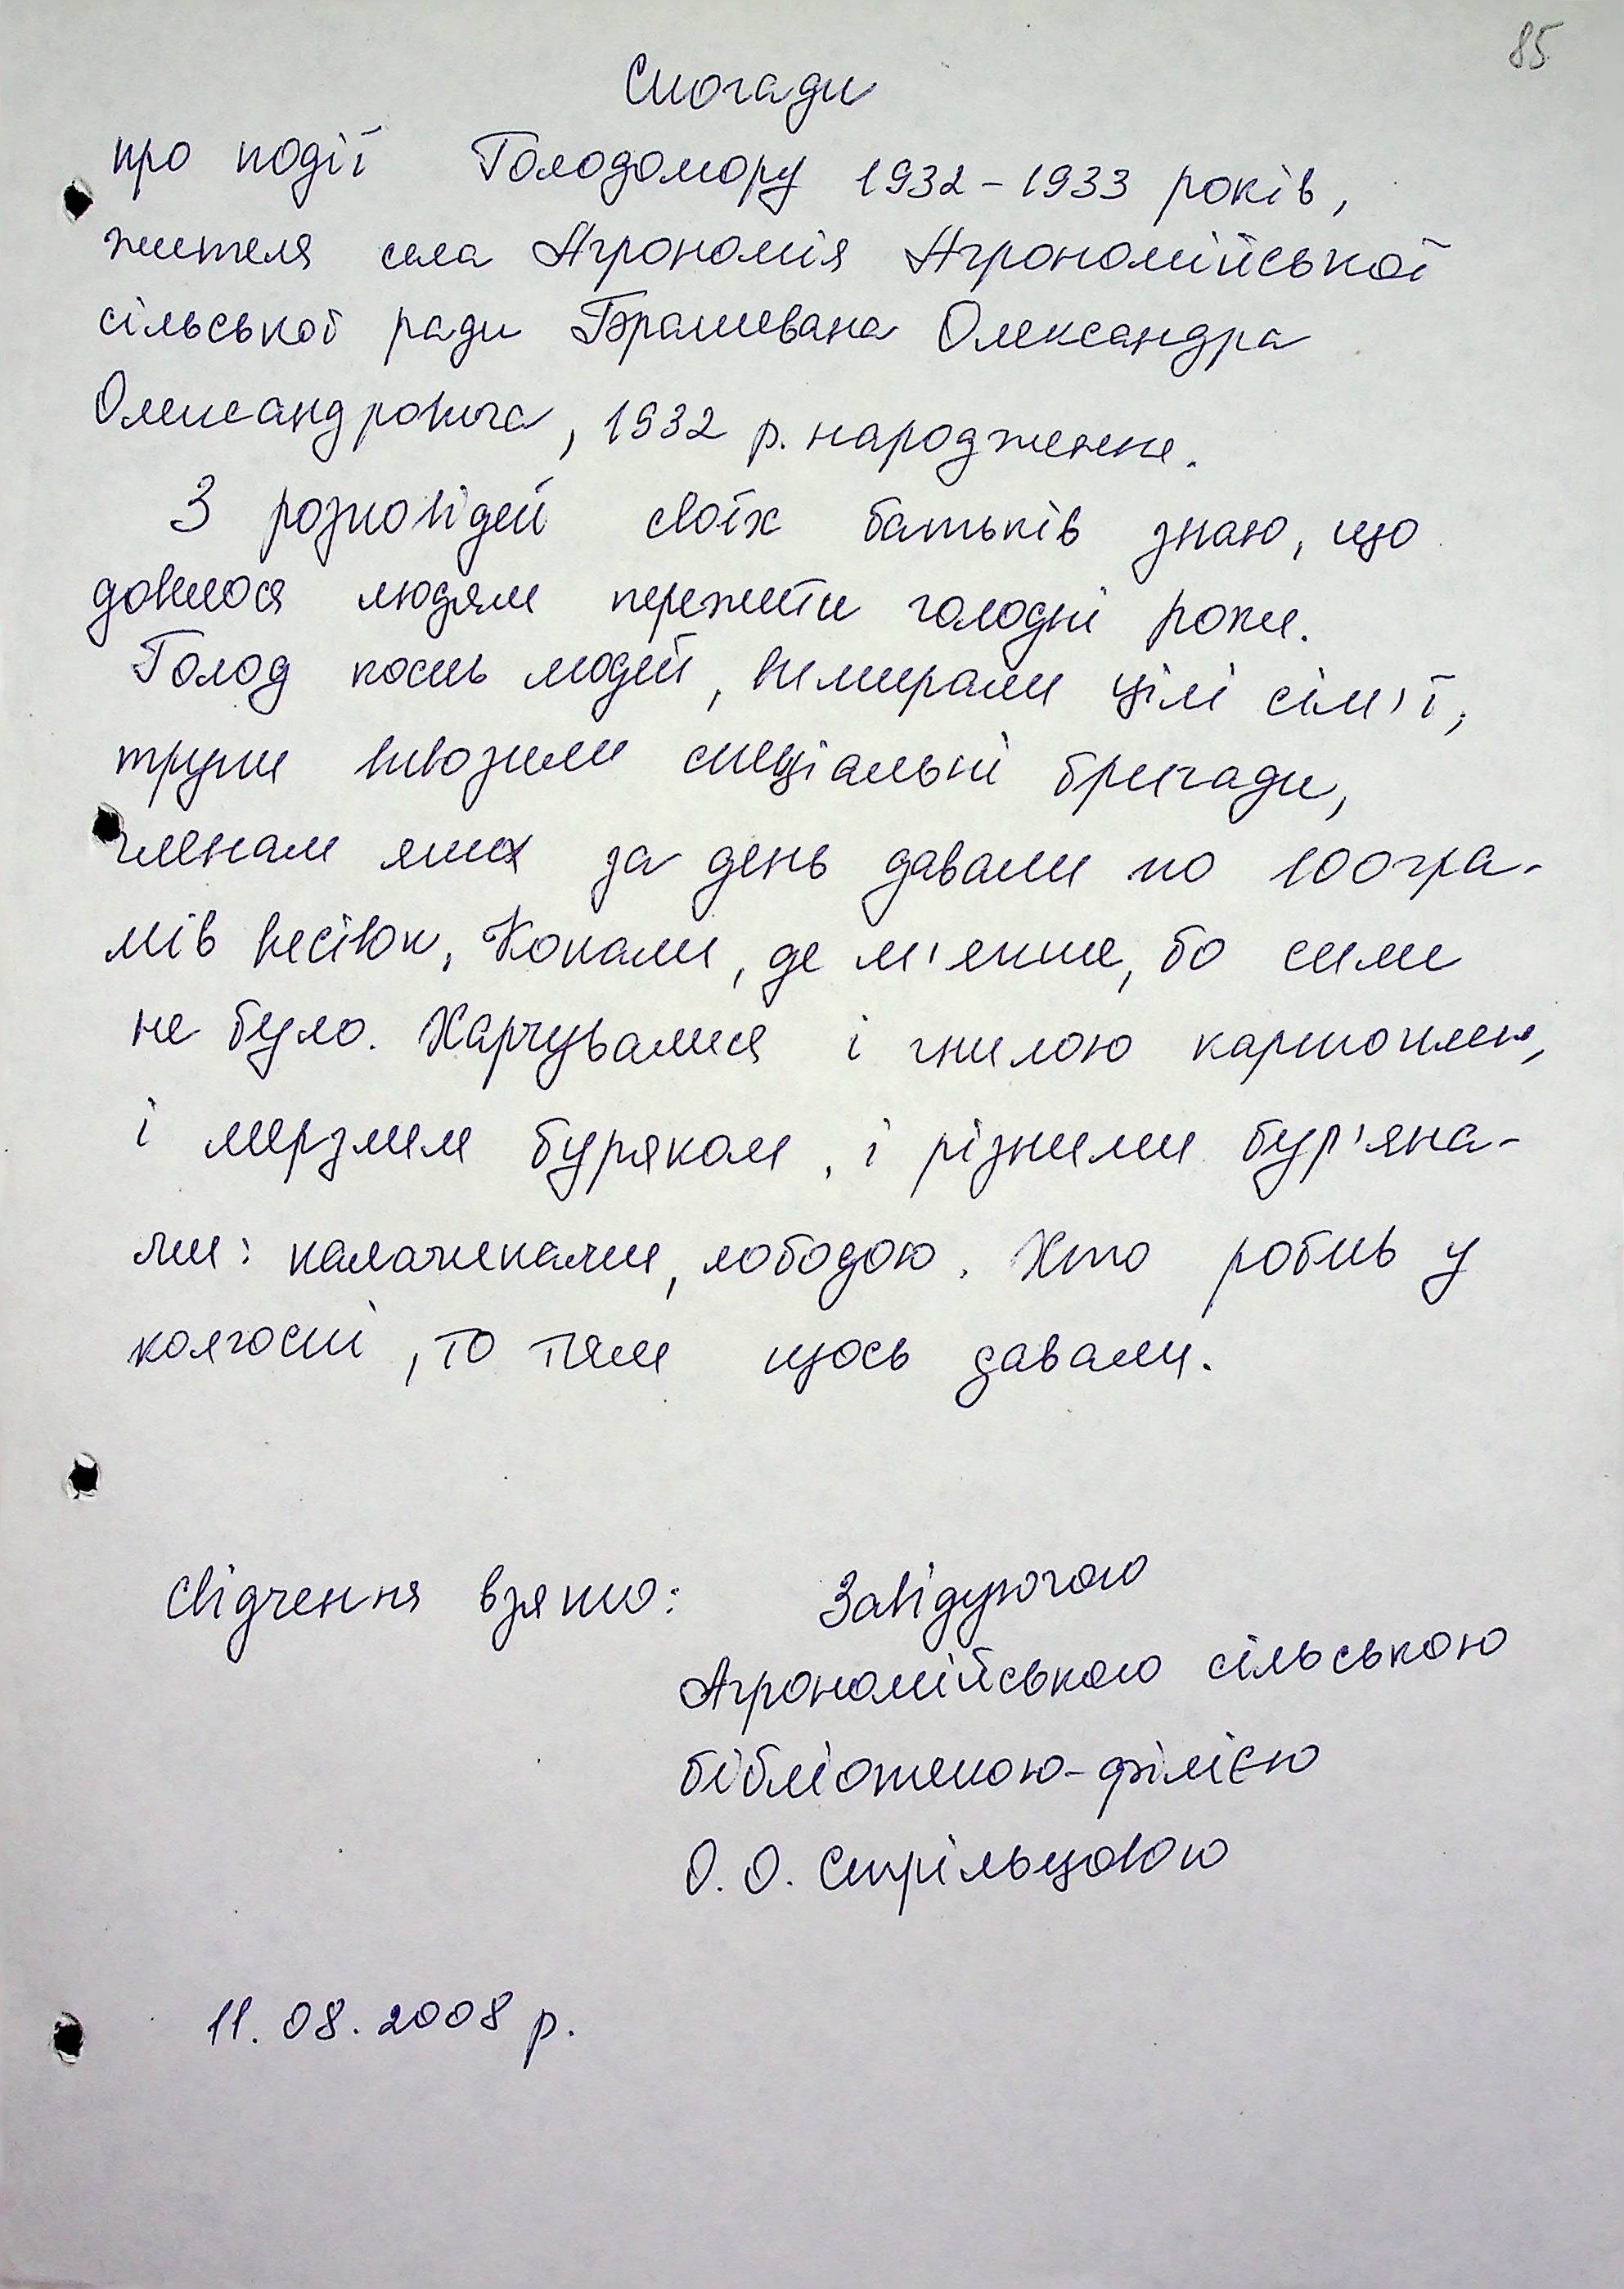 85
Спогади
про події Голодомору 1932-1933 років,
жителя села Агрономія Агрономійської
сільської ради Брашевана Олександра
Олександровича, 1932 р. народження.
З розповідей своїх батьків знаю, що
довелося людям пережити голодні роки.
Голод косив людей, вимирали цілі сім'ї,
трупи вивозили спеціальні бригади,
членам яких за день давали по 100 гра-
мів висівок. Копали, де м'якше, бо сили
не було. Харчувалися і гнилою картоплею,
і мерзлим буряком, і різними бур'яна-
ми: калачиками, лободою. Хто робив у
колгоспі, то тим щось давали.
Свідчення взято: Завідуючою
Агрономійською сільською
бібліотекою-філією
О. О. Стрільцовою
11.08.2008 р.